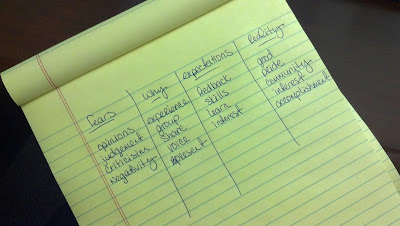 Fears
opinions
judgement
criticisms
negativity
Why
experience
group
share
voice
expectations
feedback
skills
learn
interest
Reality
good
pride
community
interest
accomplishment